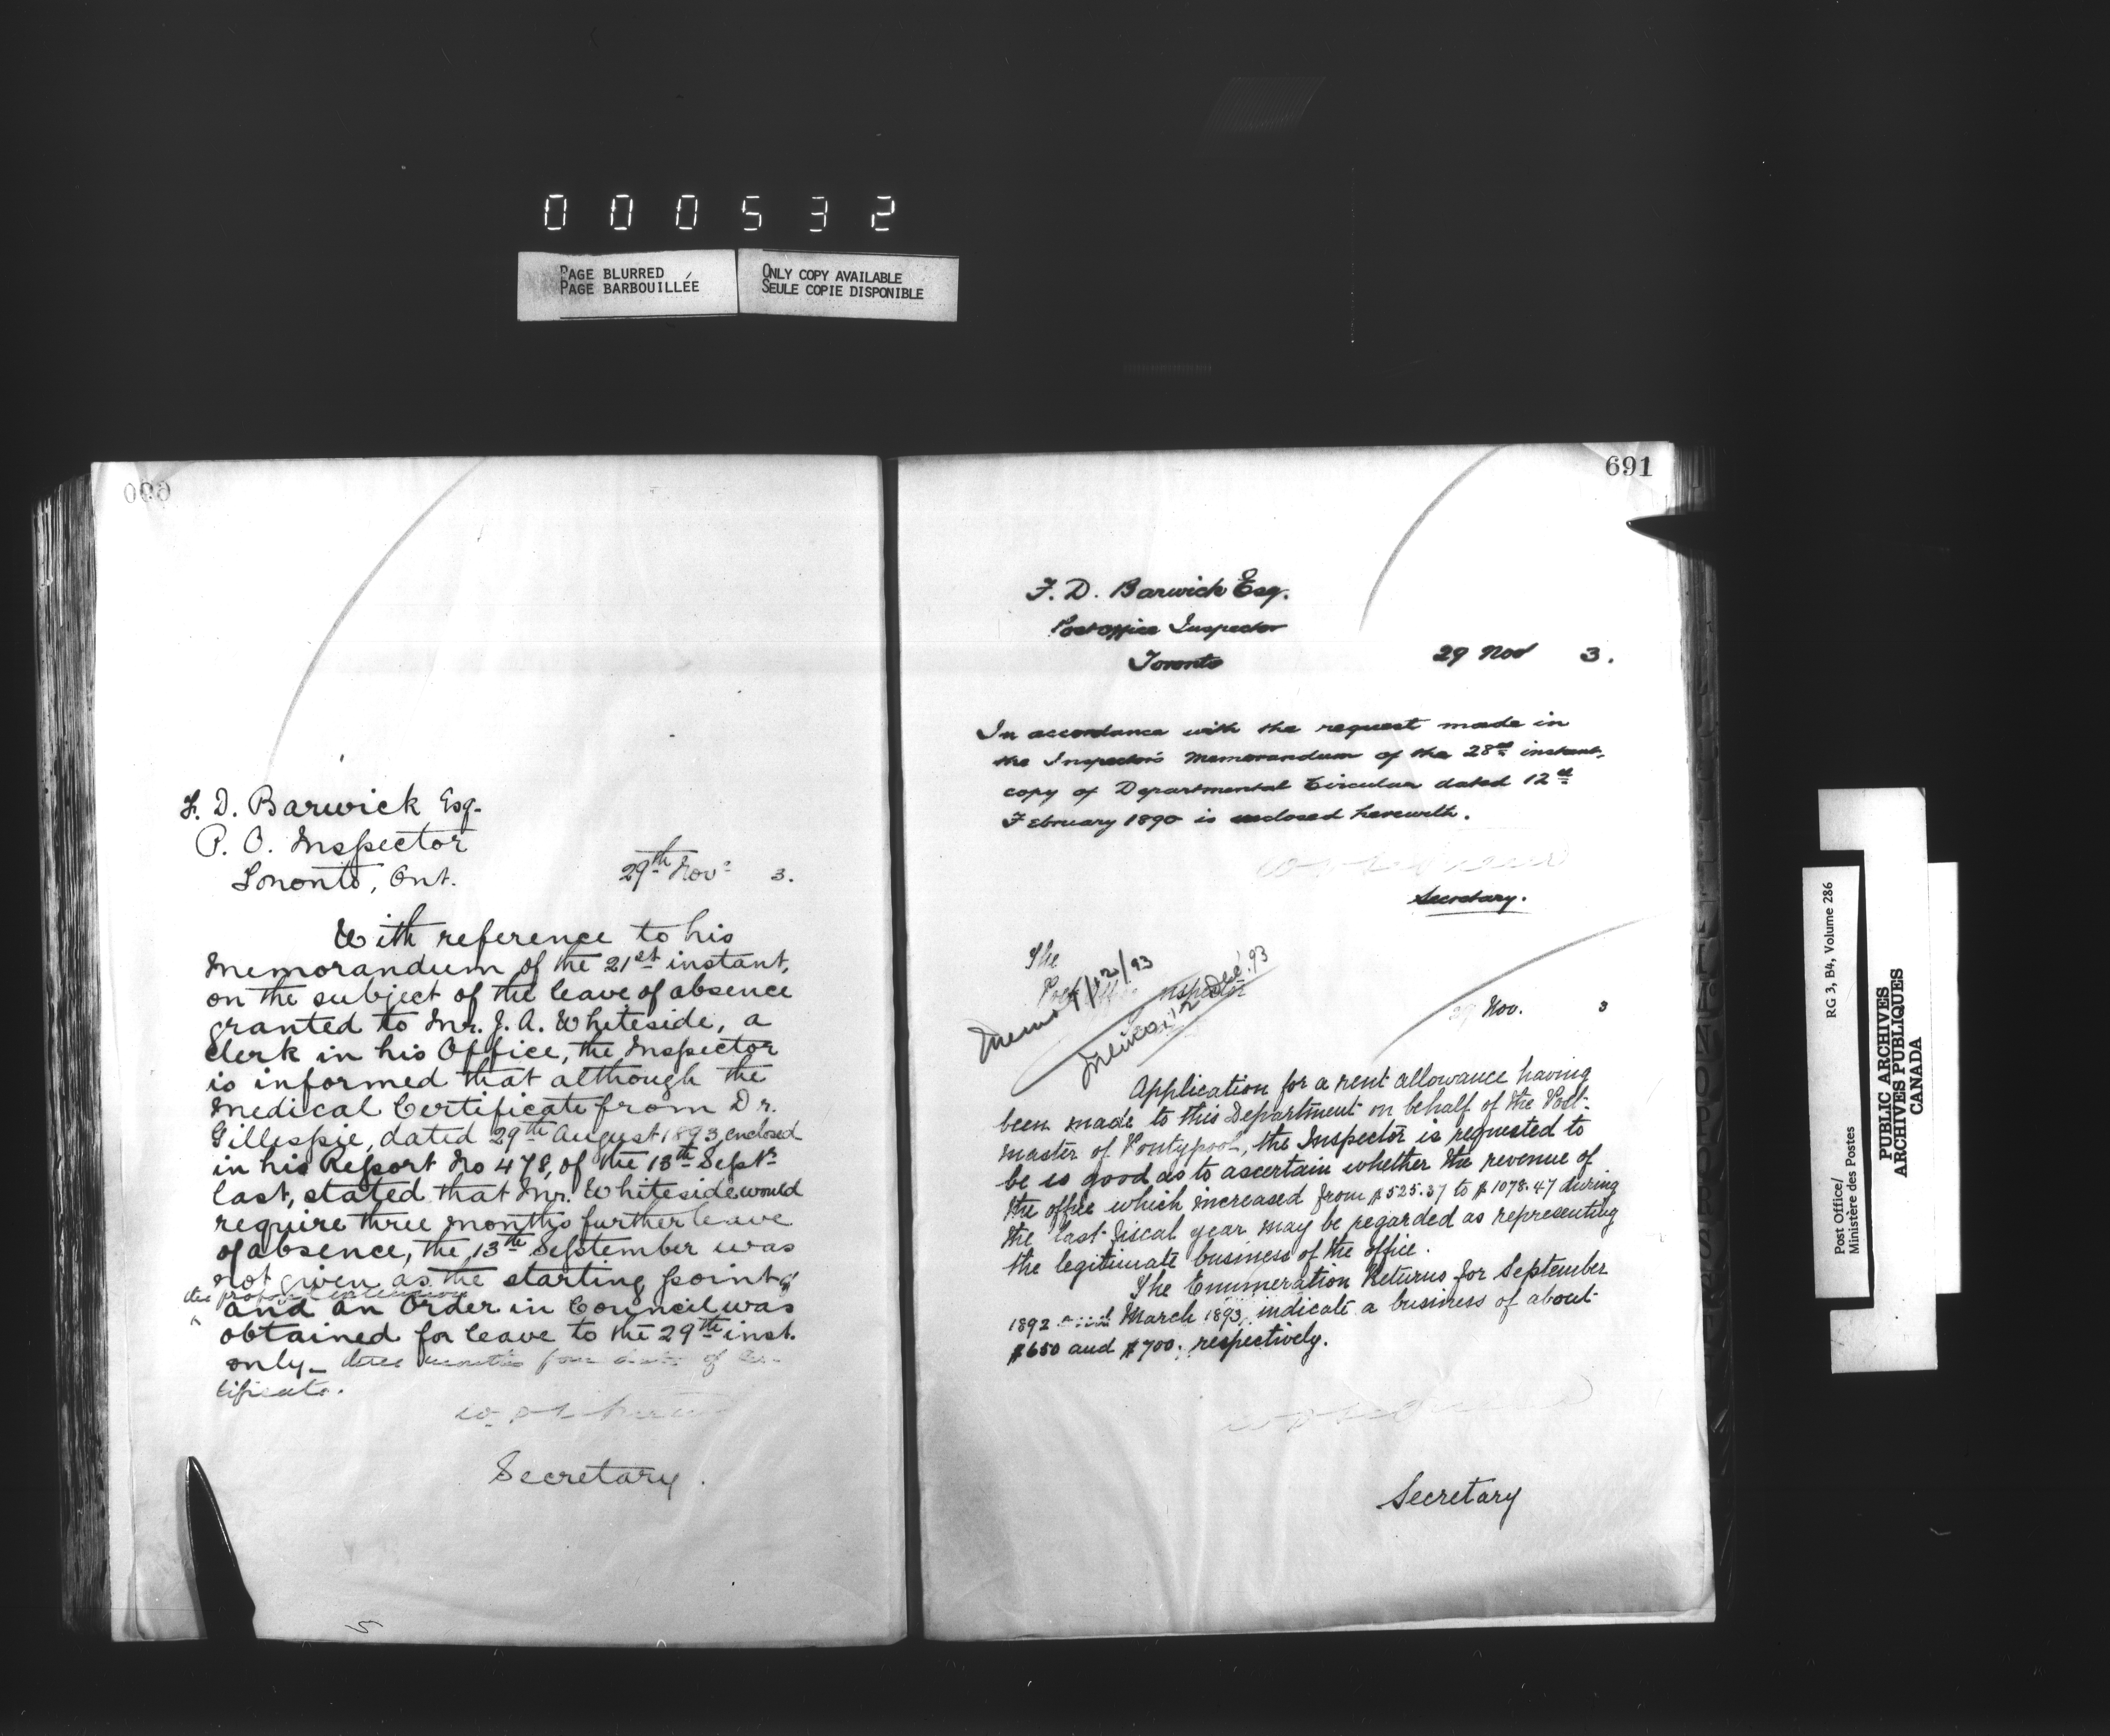 000532
PAGE BLURRED
PAGE BARBOUILLÉE
ONLY COPY AVAILABLE
SEULE COPIE DISPONIBLE
F. D. Barwick Esq.
P. O. Inspector
Toronto, Ont.
29th Novr 3.
With reference to his
Memorandum of the 21st instant,
on the subject of the leave of absence
granted to Mr. J. A. Whiteside, a
Clerk in his Office, the Inspector
is informed that although the
Medical Certificate from Dr.
Gillespie, dated 29th August 1893, enclosed
in his Report No 478, of the 13th Septr
last, stated that Mr. Whiteside would
require three months further leave
of absence, the 13th September was
not given as the starting point of
the proposed extension
and an Order in Council was
obtained for leave to the 29th inst.
only - three months from date of Cer-
tificate.
Secretary.
691
F. D. Barwick Esq.
Post Office Inspector
Toronto
29 Nov 3.
In accordance with the request made in
the Inspector's Memorandum of the 28th instant,
copy of Departmental Circular dated 12th
February 1890 is enclosed herewith.
Secretary.
The
Post Office Inspector
Memo 1/12/93
Memo 12 Dec. 93
Nov. 3
Application for a rent allowance having
been made to this Department on behalf of the Post-
master of Pontypool, the Inspector is requested to
be so good as to ascertain whether the revenue of
the office which increased from $525.37 to $1078.47 during
the last fiscal year may be regarded as representing
the legitimate business of the office.
The Enumeration Returns for September
1892 and March 1893, indicate a business of about
$650 and $700. respectively.
Secretary
Post Office/
Ministère des Postes
RG 3, B4, Volume 286
PUBLIC ARCHIVES
ARCHIVES PUBLIQUES
CANADA